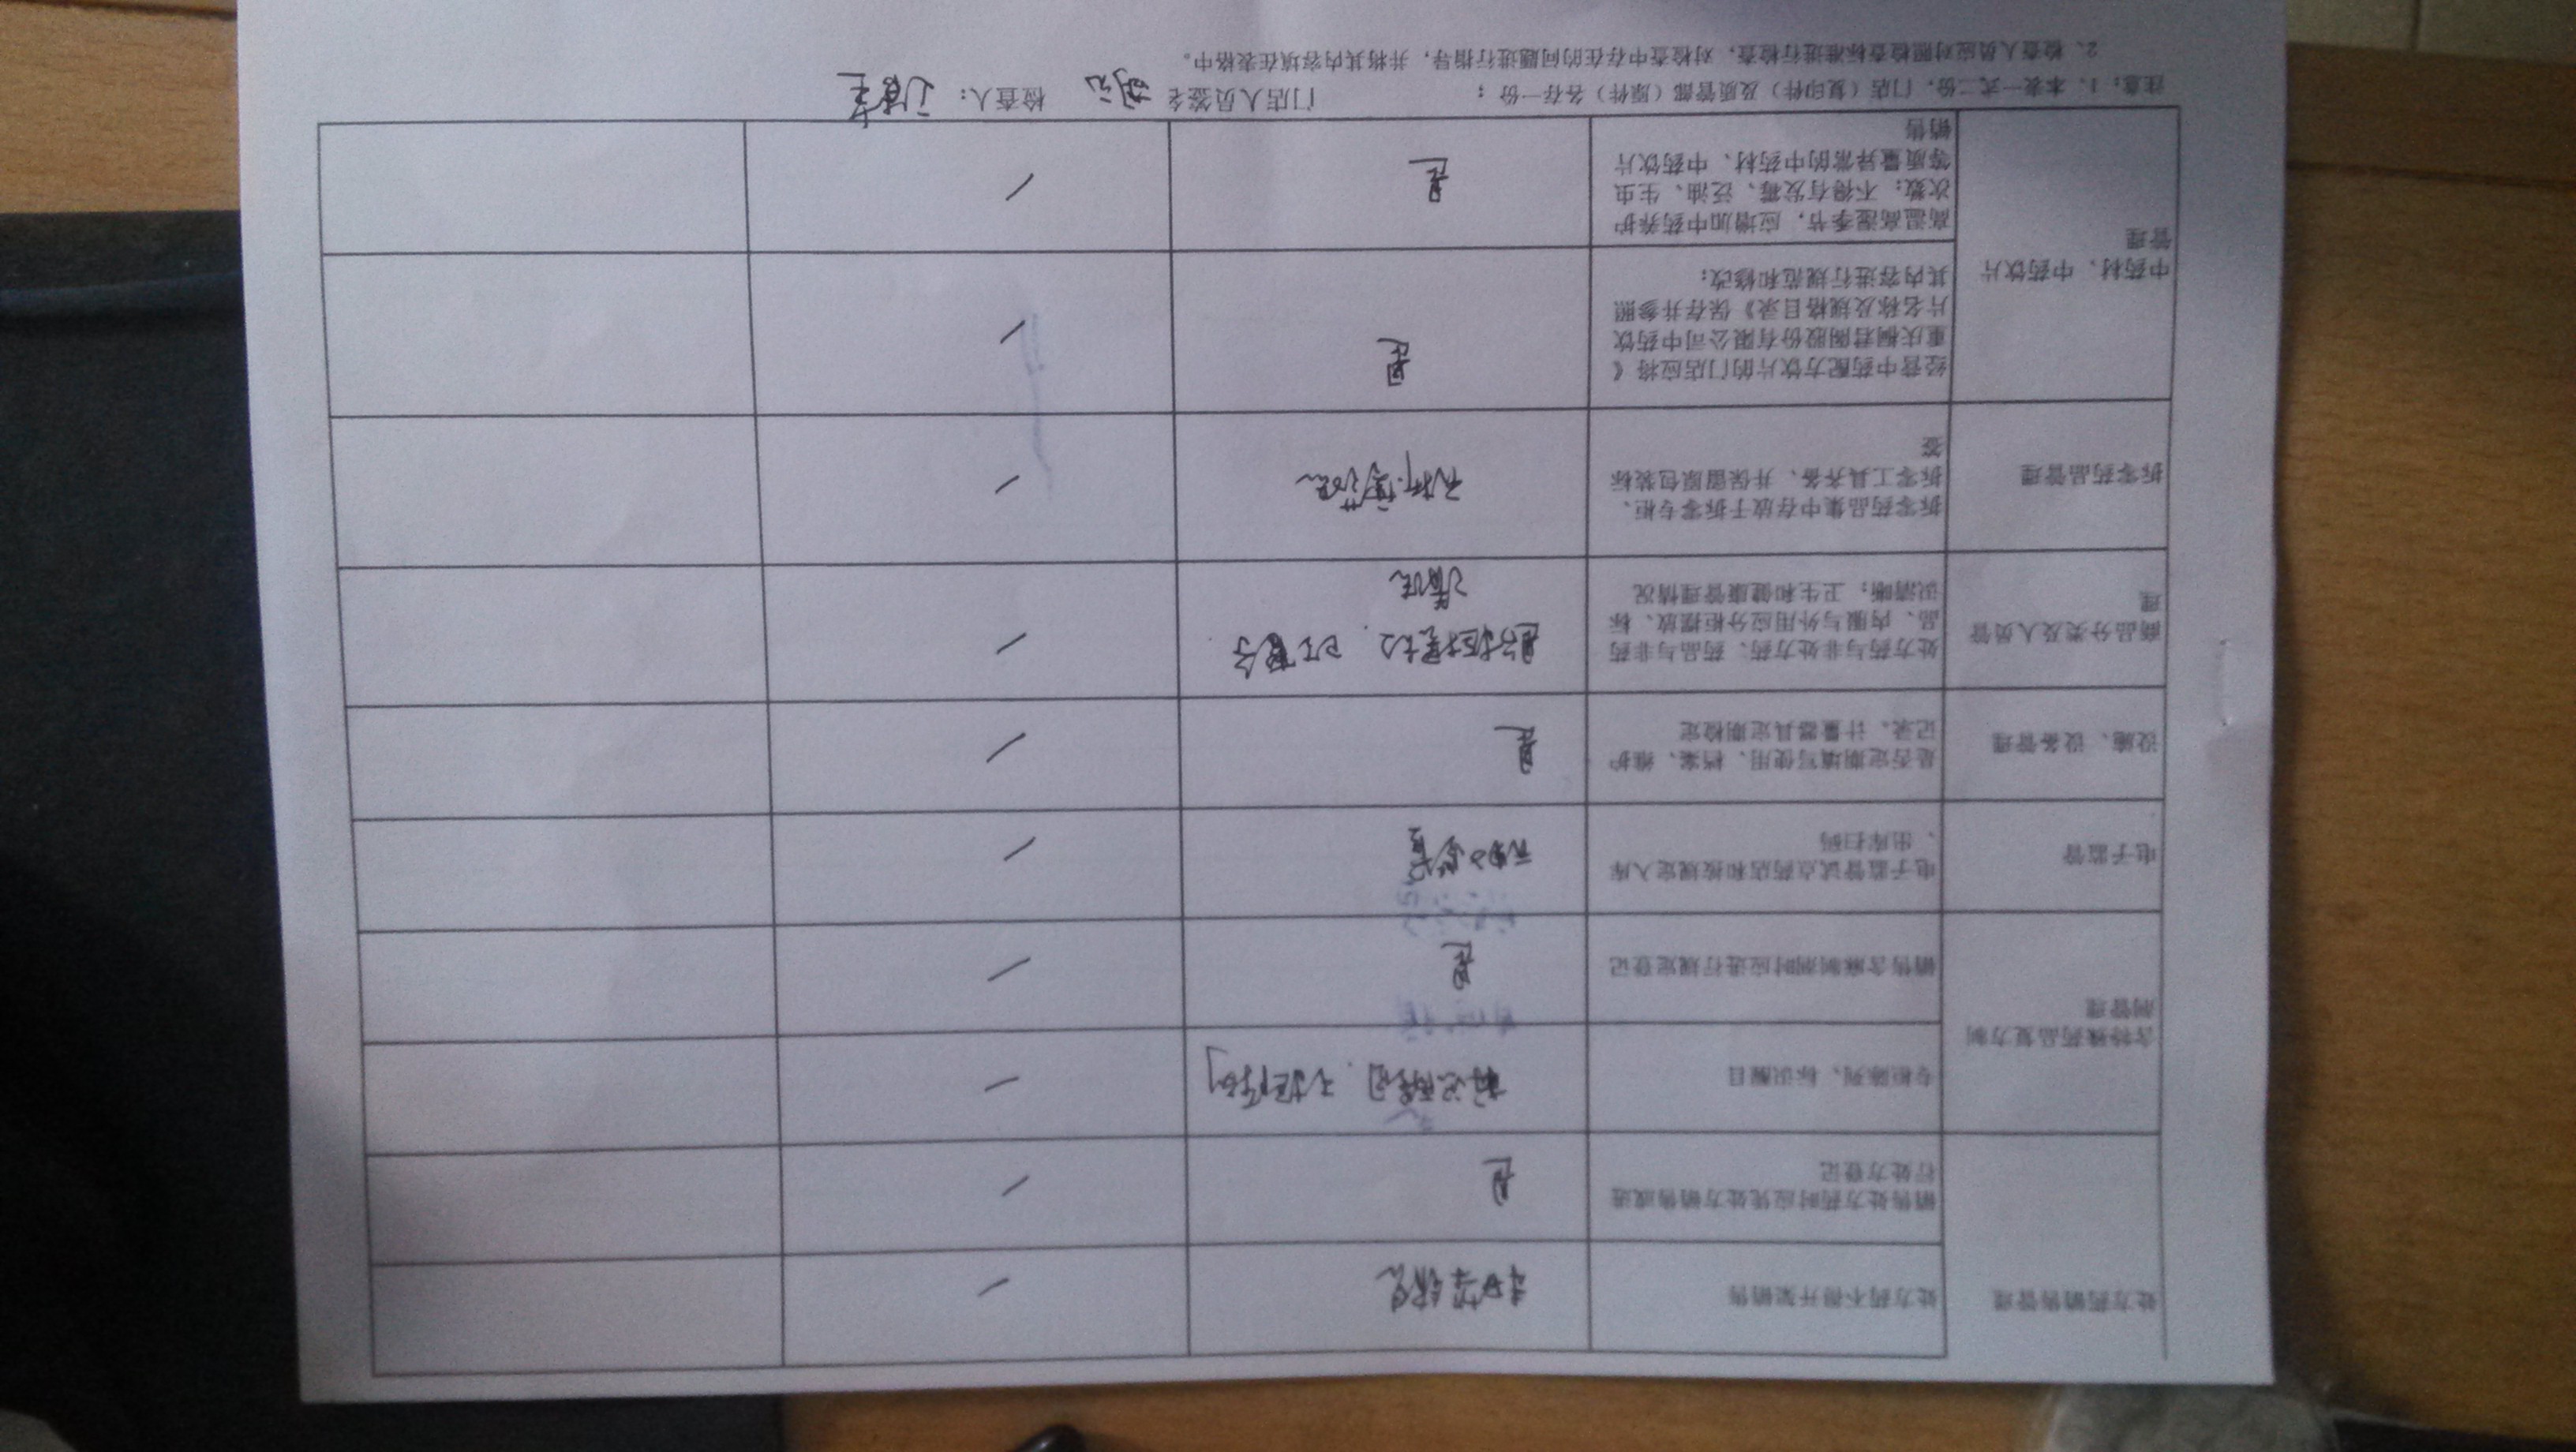 处方药销售管理
处方药不得开架销售
未开架销售
销售处方药时应凭处方销售或进
行处方登记
是
含特殊药品复方制
剂管理
专柜陈列、标识醒目
标识醒目
销售含麻制剂时应进行规定登记
是
电子监管
电子监管试点药店和按规定入库
、出库扫码
设施、设备管理
是否定期填写使用、档案、维护
记录、计量器具定期检定
是
商品分类及人员管
理
处方药与非处方药；药品与非药
品、内服与外用应分柜摆放、标
识清晰；卫生和健康管理情况
清晰
拆零药品管理
拆零药品集中存放于拆零专柜、
拆零工具齐备、并保留原包装标
签
无拆零药品
中药材、中药饮片
管理
经营中药配方饮片的门店应将《
重庆桐君阁股份有限公司中药饮
片名称及规格目录》保存并参照
其内容进行规范和修改；
是
高温高湿季节，应增加中药养护
次数；不得有发霉、泛油、生虫
等质量异常的中药材、中药饮片
销售
是
注意：1、本表一式二份，门店（复印件）及质管部（原件）各存一份； 门店人员签名 检查人：
2、检查人员应对照检查标准进行检查，对检查中存在的问题进行指导，并将其内容填在表格中。